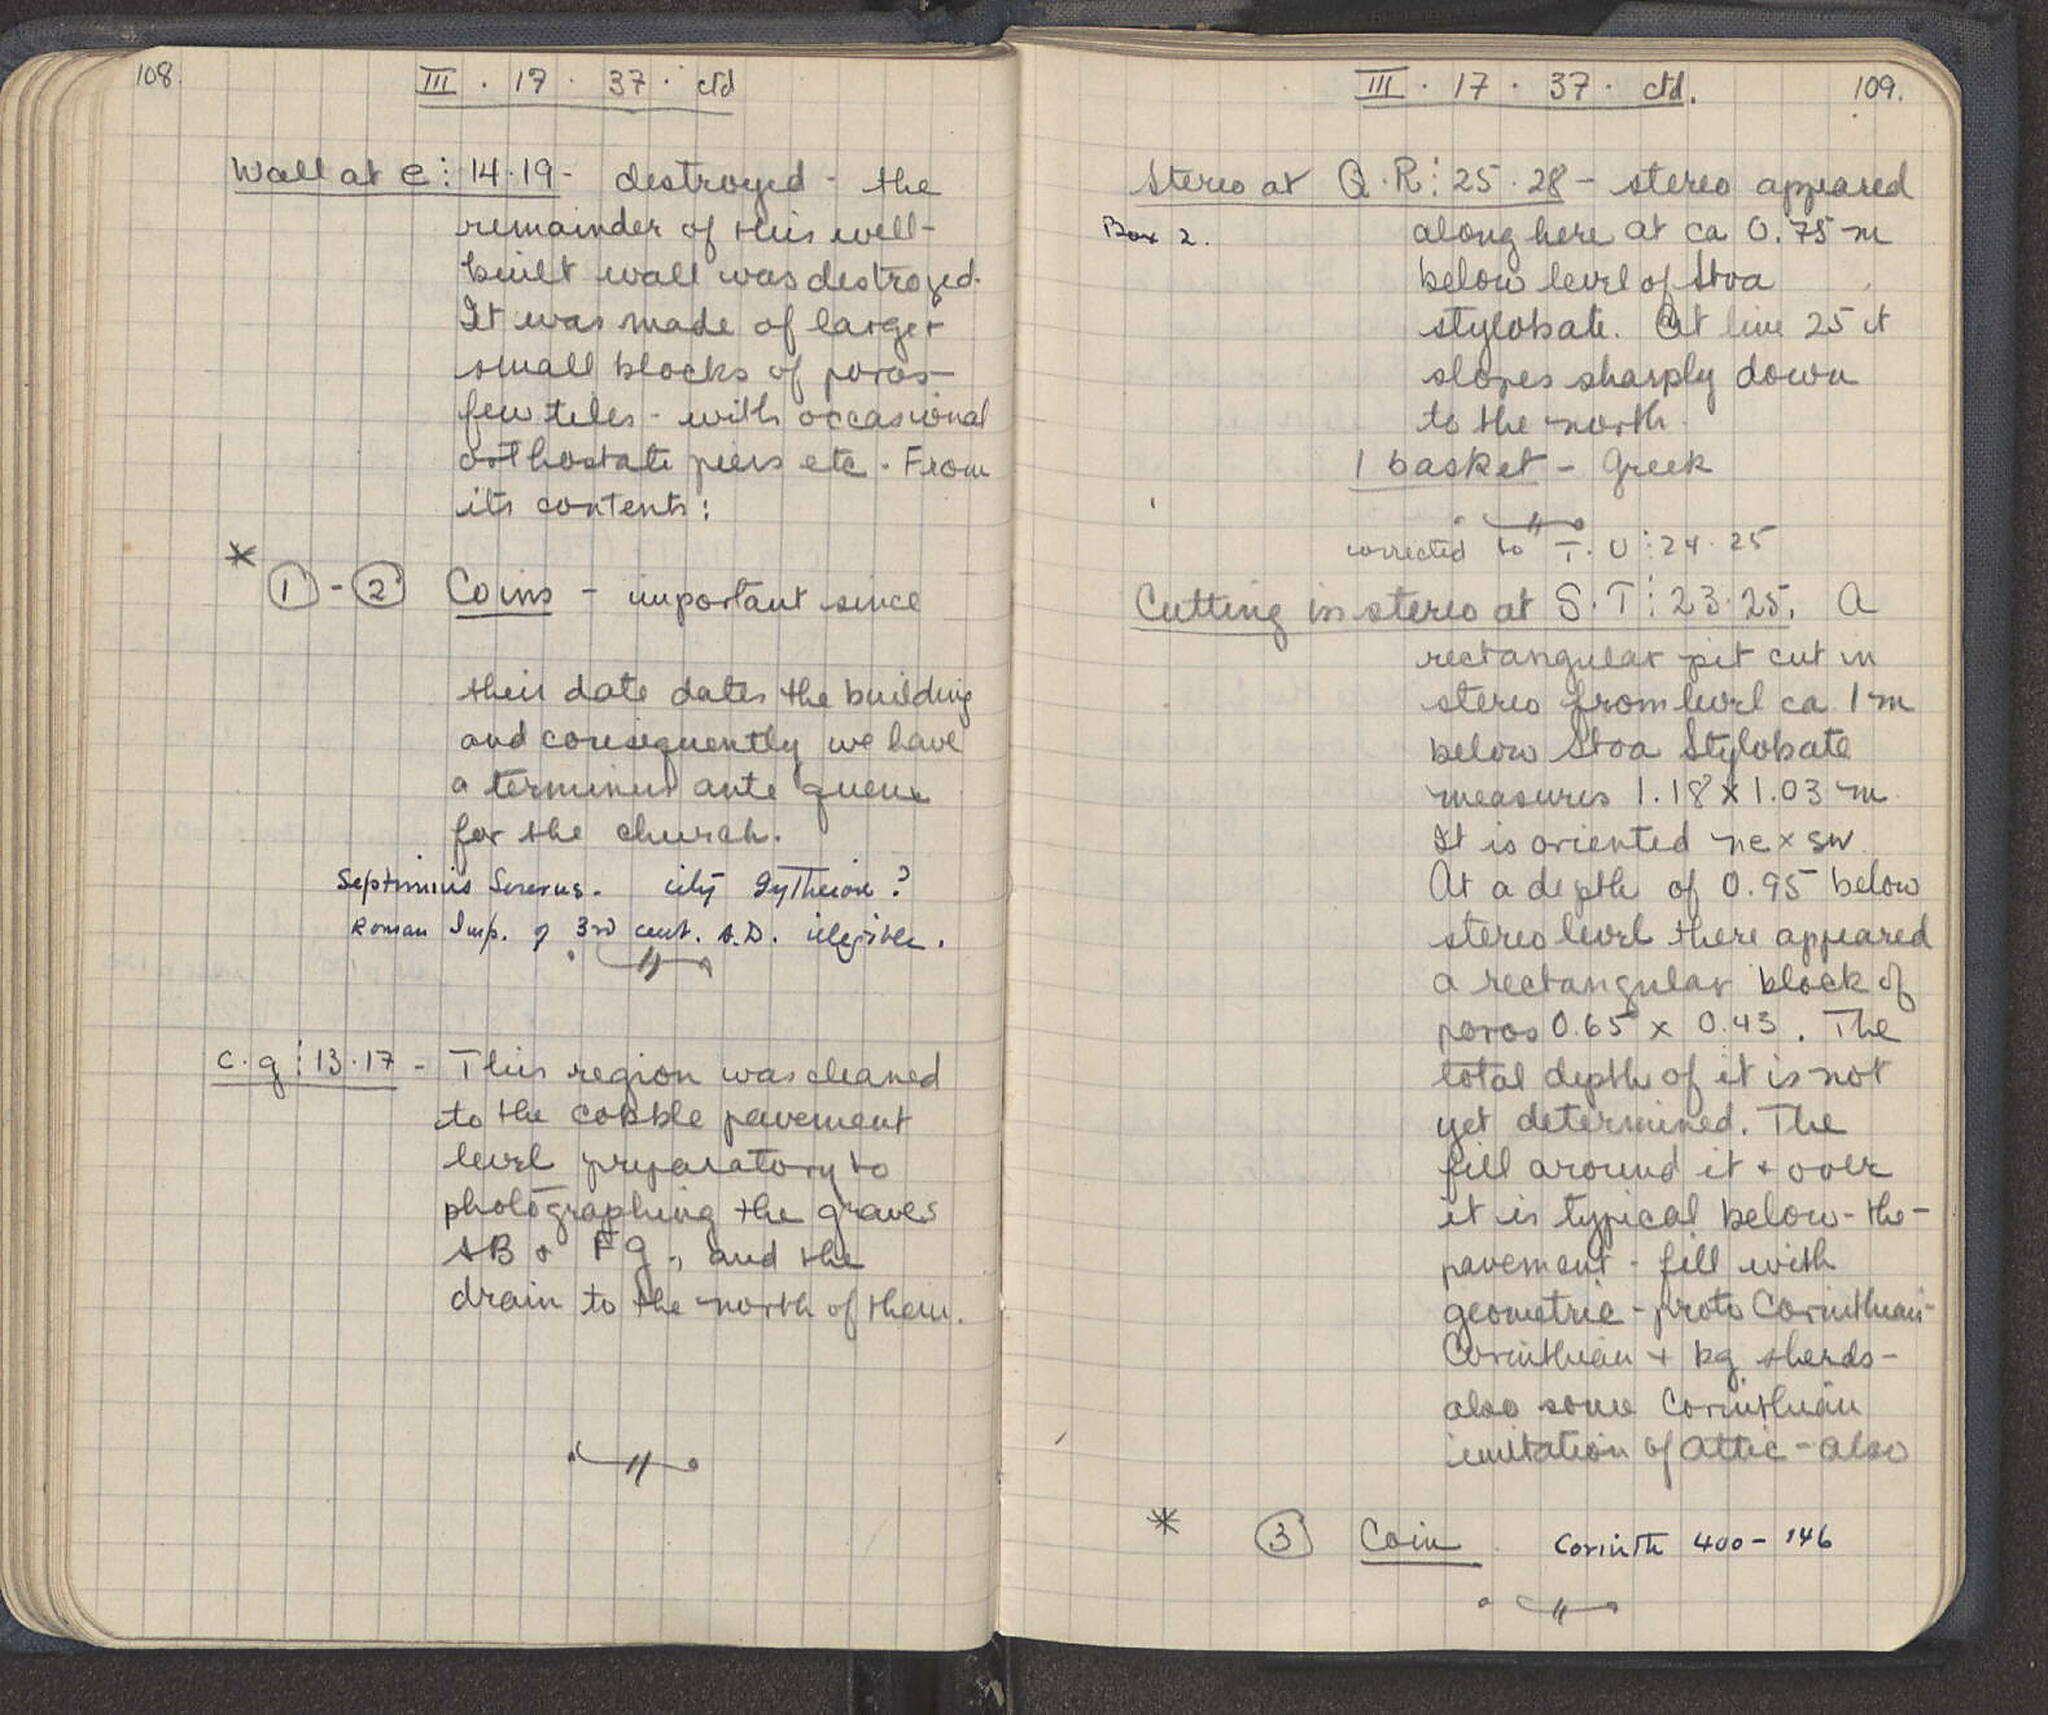 108.
III . 17 . 37 . ctd
Wall at e : 14.19 - destroyed - the
remainder of this well-
built wall was destroyed.
It was made of larger
small blocks of poros -
few tiles - with occasional
orthostate piers etc. From
its contents :
* 1 - 2 Coins - important since
their date dates the building
and consequently we have
a terminus ante quem
for the church.
Septimius Severus. city Gytheion ?
Roman Imp. of 3rd cent. A.D. illegible.
c.g : 13.17 - This region was cleaned
to the cobble pavement
level preparatory to
photographing the graves
AB & FG, and the
drain to the north of them.
III . 17 . 37 . ctd. 109.
Stereo at Q.R : 25.28 - stereo appeared
Box 2. along here at ca 0.75 m
below level of Stoa
stylobate. At line 25 it
slopes sharply down
to the north.
1 basket - Greek
corrected to T.U : 24.25
Cutting in stereo at S.T : 23.25. A
rectangular pit cut in
stereo from level ca 1 m
below Stoa Stylobate
measures 1.18 x 1.03 m.
It is oriented ne x sw.
At a depth of 0.95 below
stereo level there appeared
a rectangular block of
poros 0.65 x 0.43. The
total depth of it is not
yet determined. The
fill around it + over
it is typical below-the-
pavement - fill with
geometric - proto Corinthian -
Corinthian + bg sherds -
also some Corinthian
imitation of Attic - also
* 3 Coin. Corinth 400 - 146